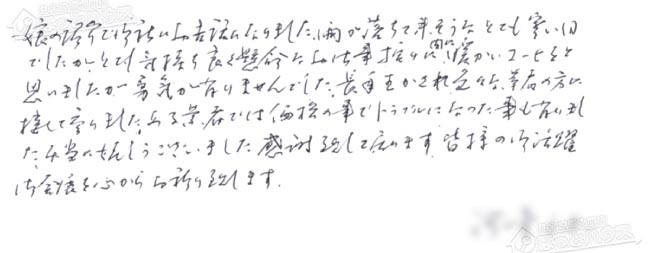 娘の紹介で御社にお世話になりました。雨が落ちて来そうなとても寒い日
でしたが、とても気持ち良く懸命なお仕事振りに間に暖かいコーヒーをと
思いましたが勇気がありませんでした。長年生かされ色々な業者の方に
接して参りました。ある業者では価格の事でトラブルになった事もありまし
た。本当に有難うございました。感謝致して居ります。皆様の御活躍
御発展を心からお祈り致します。